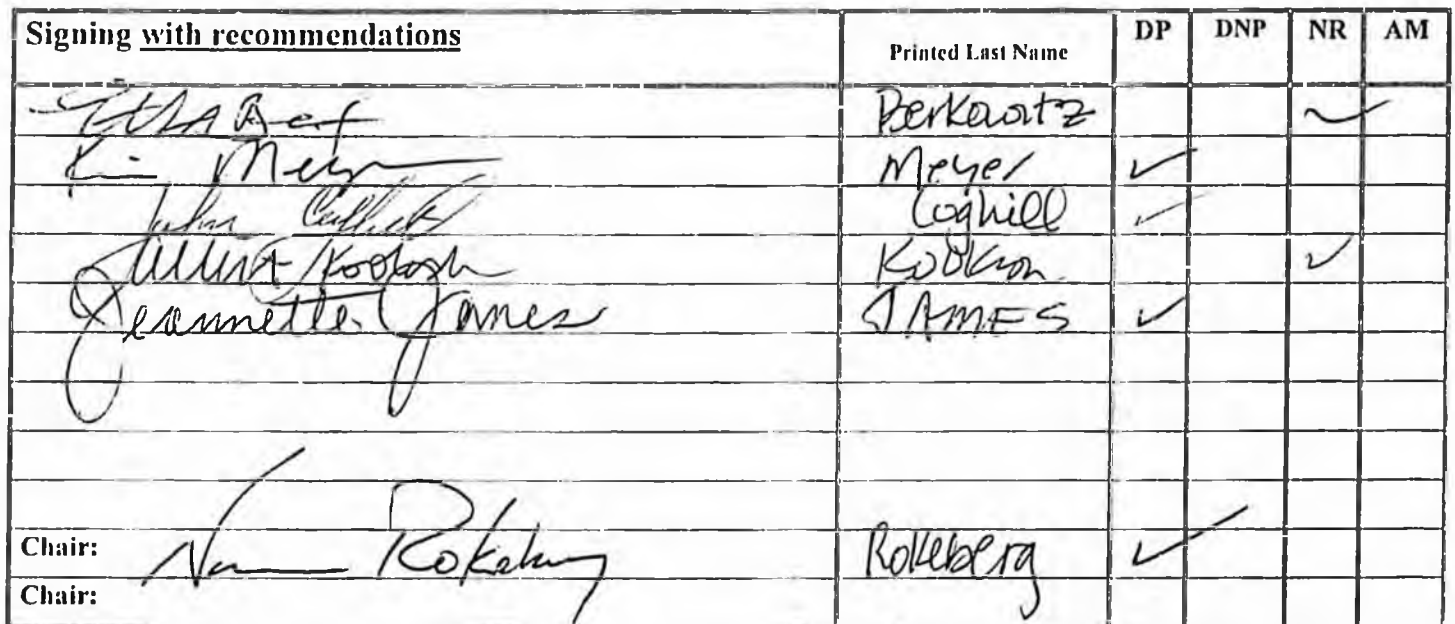 Signing with recommendations Printed Last Name DP DNP NR AM
Berkowitz ✓
Kim Meyer Meyer ✓
John Coghill Coghill ✓
Albert Kookesh ✓
Jeannette James JAMES ✓
Chair: Norman Rokeberg Rokeberg ✓
Chair: